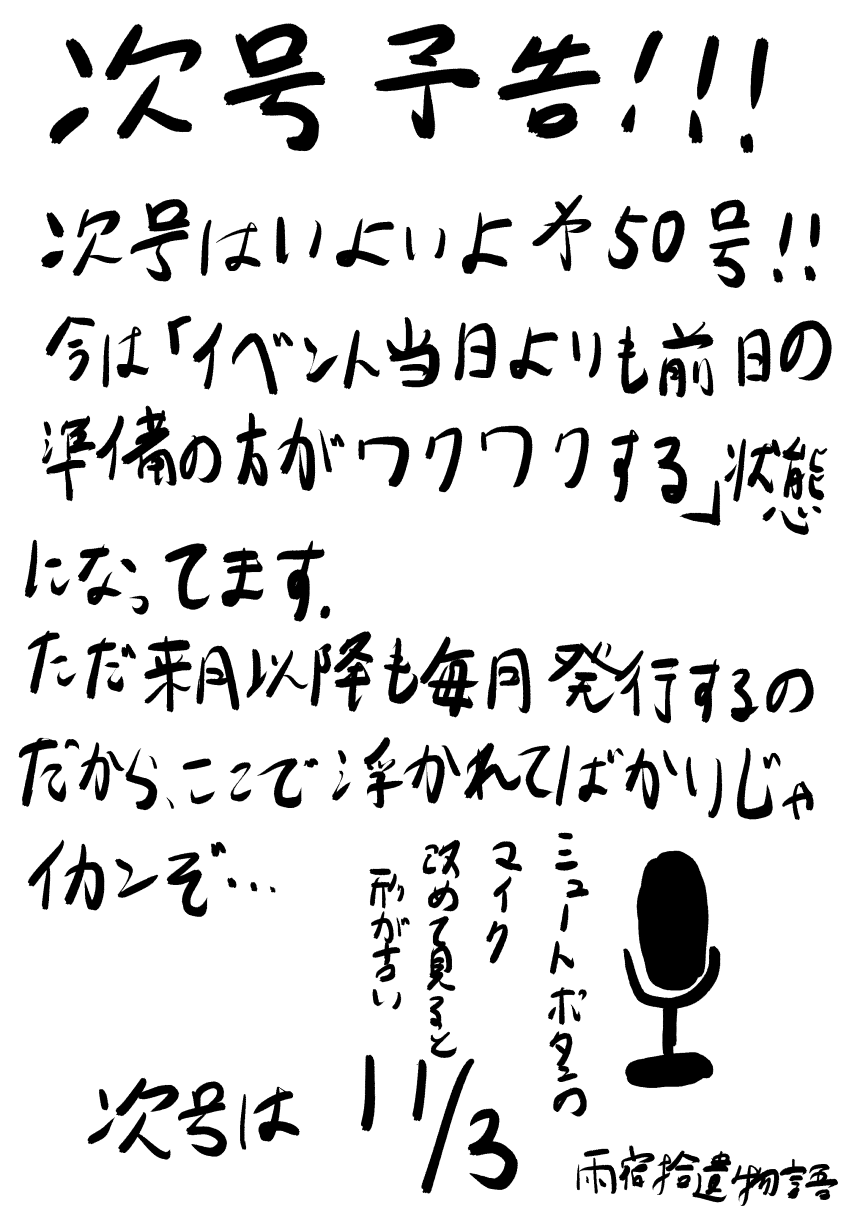 次号予告!!!
次号はいよいよ㐧50号!!
今は「イベント当日よりも前日の
準備の方がワクワクする」状態
になってます.
ただ来月以降も毎月発行するの
だから、ここで浮かれてばかりじゃ
イカンぞ…
ミュートボタンの
マイク
改めて見ると
形が古い
次号は 11/3
雨宿拾遺物語